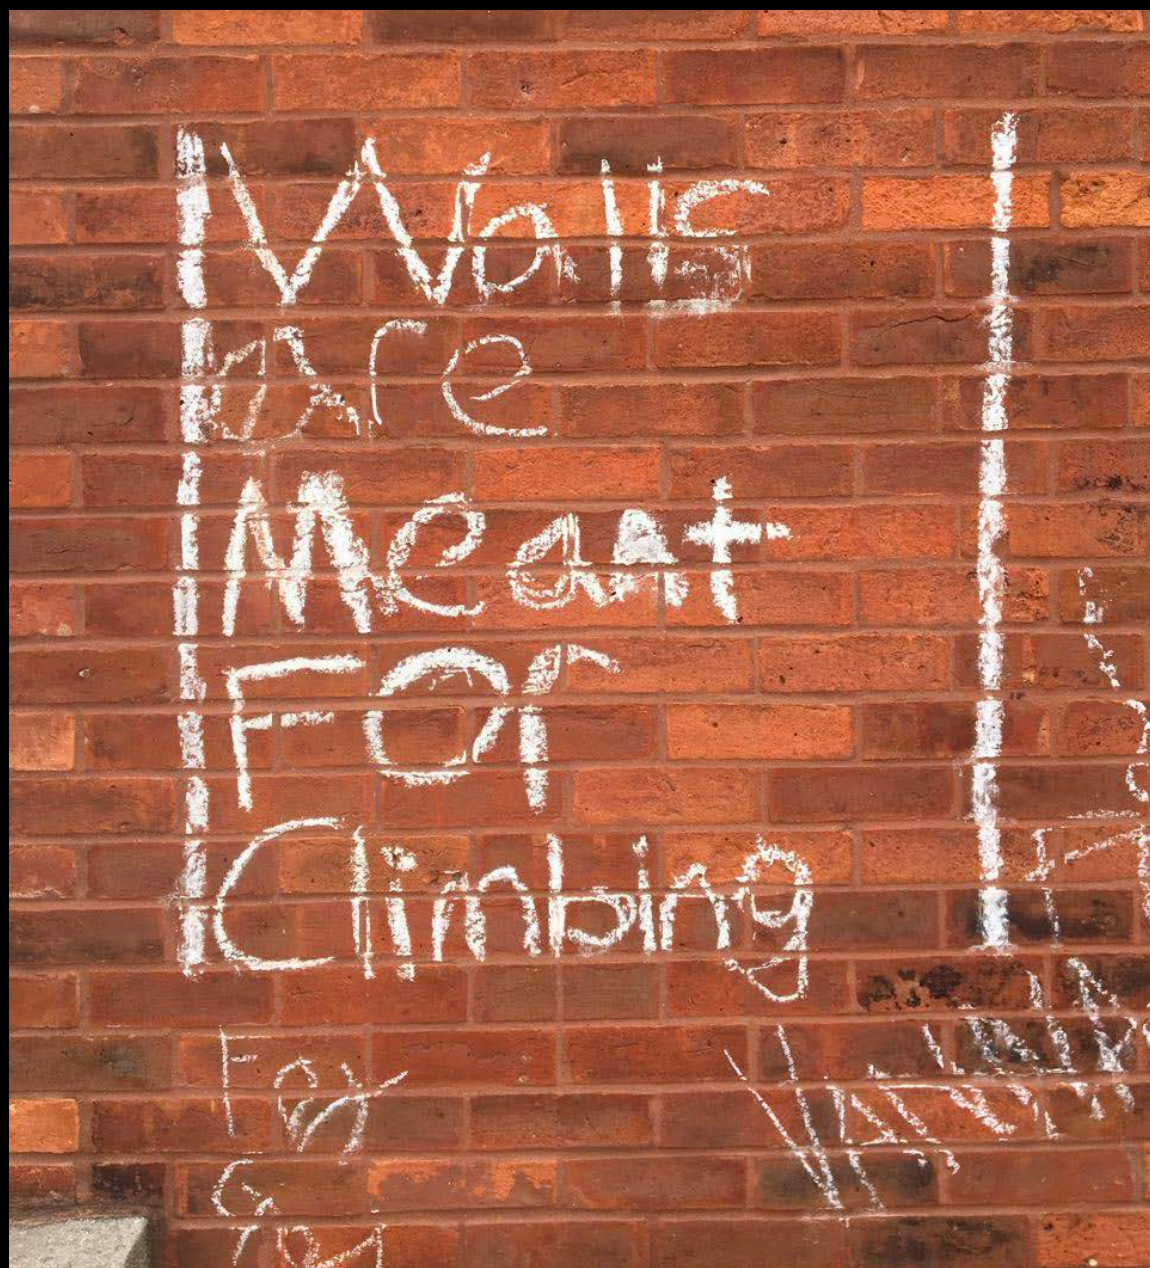 Walls
are
Meant
For
Climbing